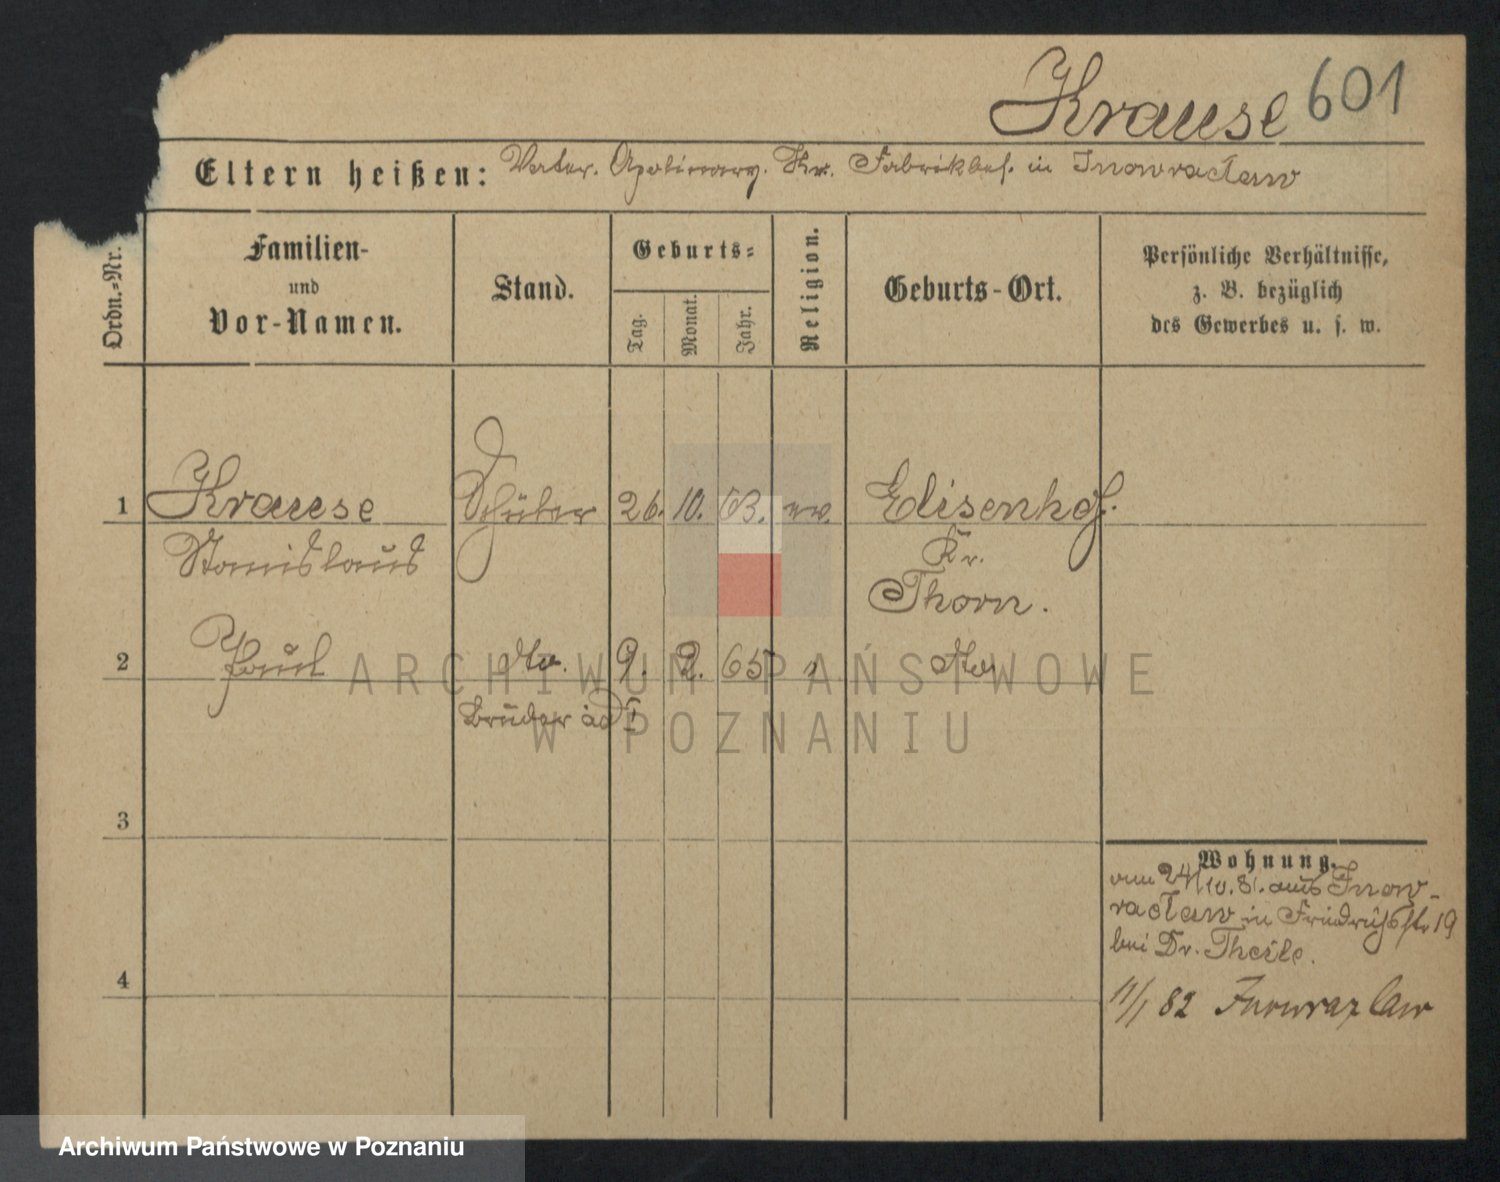 Krause 601
Eltern heißen: Vater. Apolinary. Kr. Fabrikbes. in Inowraclaw
Ordn.-Nr.
Familien-
und
Vor-Namen.
Stand.
Geburts-
Tag.
Monat.
Jahr.
Religion.
Geburts-Ort.
Persönliche Verhältnisse,
z. B. bezüglich
des Gewerbes u. s. w.
1 Krause Schüler 26. 10. 63. ev. Elisenhof.
Stanislaus Kr.
Thorn.
2 Paul dto. 9. 2. 65 " dto
Bruder ad I
3
4
Wohnung.
vom 24/10. 81. aus Inow-
raclaw in Friedrichsstr 19
bei Dr. Theile.
11/1 82 Inowrazlaw
ARCHIWUM PAŃSTWOWE
W POZNANIU
Archiwum Państwowe w Poznaniu